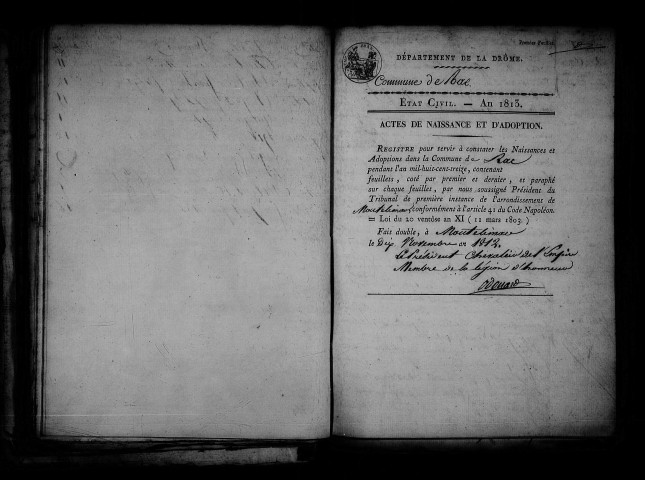 Premier Feuillet
DÉPARTEMENT DE LA DRÔME.
Commune de Rac
ETAT CIVIL. — AN 1813.
ACTES DE NAISSANCE ET D'ADOPTION.
REGISTRE pour servir à constater les Naissances et
Adoptions dans la Commune de Rac
pendant l'an mil-huit-cent-treize, contenant
feuillets, coté par premier et dernier, et paraphé
sur chaque feuilles, par nous soussigné Président du
Tribunal de première instance de l'arrondissement de
Montelimar, conformément à l'article 41 du Code Napoléon.
= Loi du 20 ventôse an XI (11 mars 1803.)
Fait double, à Montelimar
le Dix Novembre an 1812.
Le Président Chevalier de l'Empire
Membre de la légion d'honneur